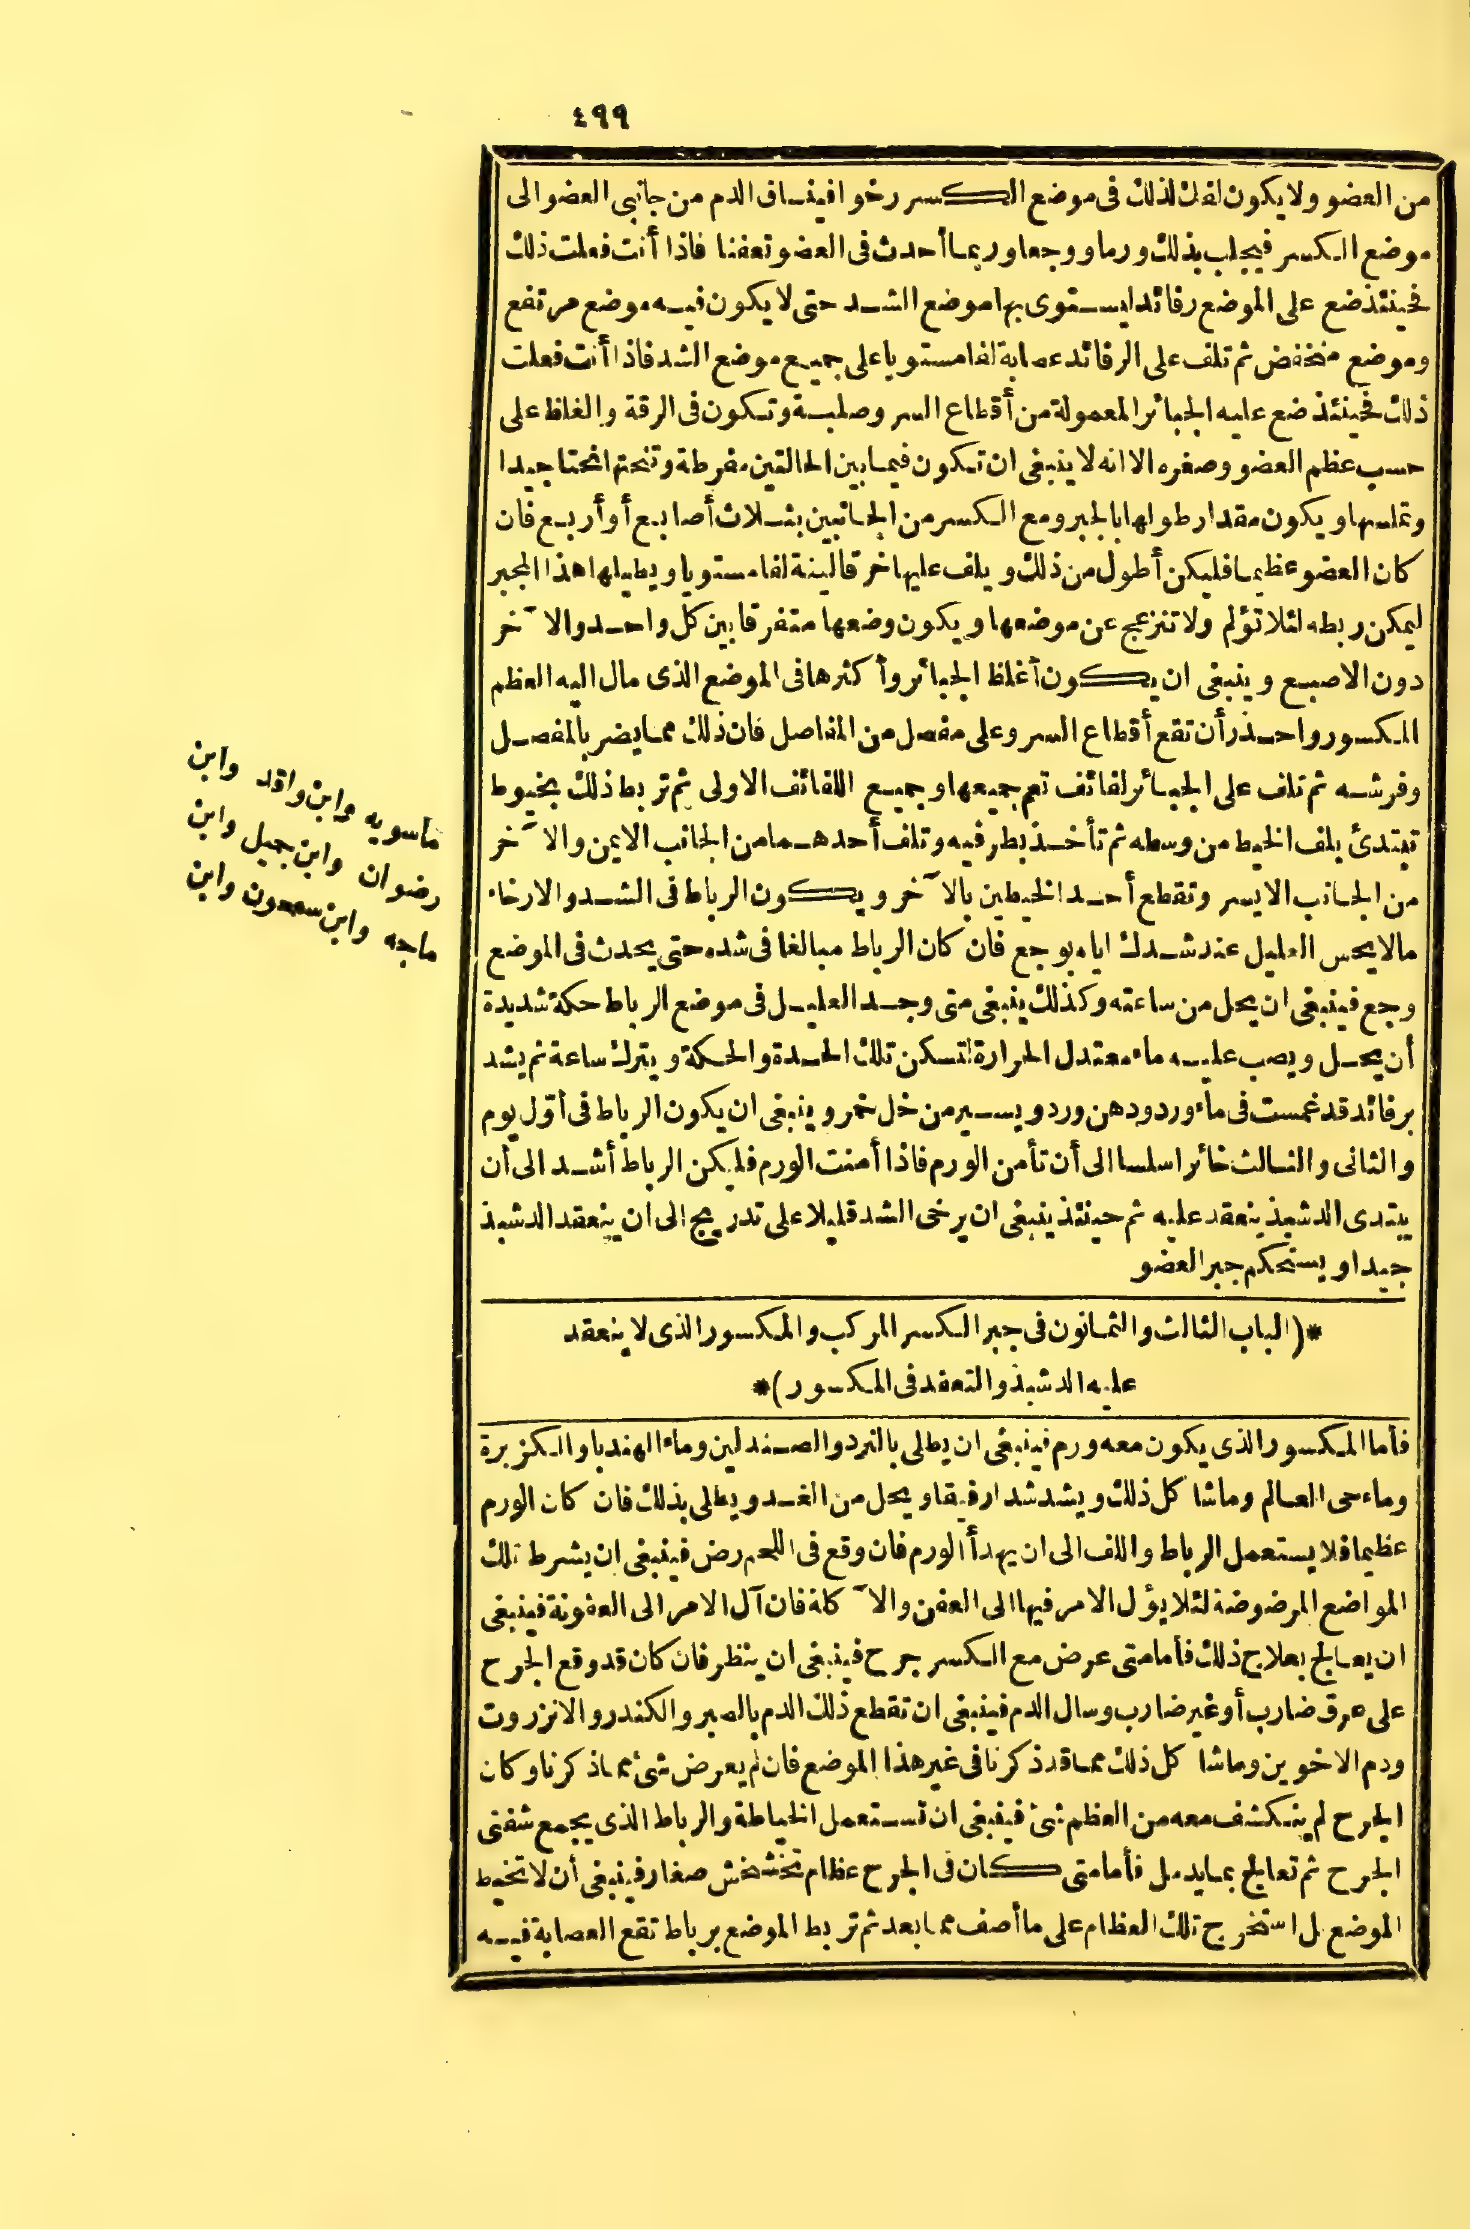 ٤٩٩
من العضو ولا يكون لفك لذلك فى موضع الكسر رخوا فينساق الدم من جانبى العضو الى
موضع الكسر فيجلب بذلك ورما ووجعا وربما أحدث فى العضو تعفنا فاذا أنت فعلت ذلك
فحينئذ ضع على الموضع رفائد ايستوى بها موضع الشد حتى لا يكون فيه موضع مرتفع
وموضع منخفض ثم تلف على الرفائد عصابة لفا مستويا على جميع موضع الشد فاذا أنت فعلت
ذلك فحينئذ ضع عليه الجبائر المعمولة من أقطاع السرو صلبة وتكون فى الرقة والغلظ على
حسب عظم العضو وصغره الا انه لا ينبغى ان تكون فيما بين الحالتين مفرطة وتنحتها نحتا جيدا
وتملسها ويكون مقدار طولها بالجبر ومع الكسر من الجانبين بثلاث أصابع أو أربع فان
كان العضو عظيما فليكن أطول من ذلك ويلف عليها خرقا لينة لفا مستويا ويطيلها هذا المجبر
ليمكن ربطه لئلا تؤلم ولا تنزعج عن موضعها ويكون وضعها متفرقا بين كل واحد والآخر
دون الاصبع وينبغى ان يكون أغلظ الجبائر وأكثرها فى الموضع الذى مال اليه العظم
المكسور واحذر أن تقع أقطاع السرو على مفصل من المفاصل فان ذلك مما يضر بالمفصل
وفرشه ثم تلف على الجبائر لفائف تعم جميعها وجميع اللفائف الاولى ثم تربط ذلك بخيوط
تبتدئ بلف الخيط من وسطه ثم تأخذ بطرفيه وتلف أحدهما من الجانب الايمن والآخر
من الجانب الايسر وتقطع أحد الخيطين بالآخر ويكون الرباط فى الشد والارخاء
مالا يحس العليل عند شدك اياه بوجع فان كان الرباط مبالغا فى شده حتى يحدث فى الموضع
وجع فينبغى ان يحل من ساعته وكذلك ينبغى متى وجد العليل فى موضع الرباط حكة شديدة
أن يحل ويصب عليه ماء معتدل الحرارة لتسكن تلك الحدة والحكة ويترك ساعة ثم يشد
برفائد قد غمست فى ماء ورد ودهن ورد ويسير من خل خمر وينبغى ان يكون الرباط فى أول يوم
والثانى والثالث خائرا سلسا الى أن تأمن الورم فاذا أمنت الورم فليكن الرباط أشد الى أن
يبتدى الدشبذ ينعقد عليه ثم حينئذ ينبغى ان يرخى الشد قليلا على تدريج الى ان ينعقد الدشبذ
جيدا ويستحكم جبر العضو
*(الباب الثالث والثمانون فى جبر الكسر المركب والمكسور الذى لا ينعقد
عليه الدشبذ والتعقد فى المكسور)*
فأما المكسور الذى يكون معه ورم فينبغى ان يطلى بالنرد والصندلين وماء الهندبا والكزبرة
وماء حى العالم وماشا كل ذلك ويشد شدا رفيقا ويحل من الغد ويطلى بذلك فان كان الورم
عظيما فلا يستعمل الرباط واللف الى ان يهدأ الورم فان وقع فى اللحم رض فينبغى ان يشرط تلك
المواضع المرضوضة لئلا يؤل الامر فيها الى العفن والآكلة فان آل الامر الى العفونة فينبغى
ان يعالج بعلاج ذلك فأما متى عرض مع الكسر جرح فينبغى ان ينظر فان كان قد وقع الجرح
على عرق ضارب أو غير ضارب وسال الدم فينبغى ان تقطع ذلك الدم بالصبر والكندر والانزروت
ودم الاخوين وماشا كل ذلك مما قد ذكرنا فى غير هذا الموضع فان لم يعرض شئ مما ذكرنا وكان
الجرح لم ينكشف معه من العظم شئ فينبغى ان تستعمل الخياطة والرباط الذى يجمع شفتى
الجرح ثم تعالج بما يدمل فأما متى كان فى الجرح عظام تخشخش صغار فينبغى أن لا تخيط
الموضع بل استخرج تلك العظام على ما أصف مما بعد ثم تربط الموضع برباط تقع العصابة فيه
ماسويه وابن واقد وابن
رضوان وابن جميل وابن
ماجه وابن سمعون وابن